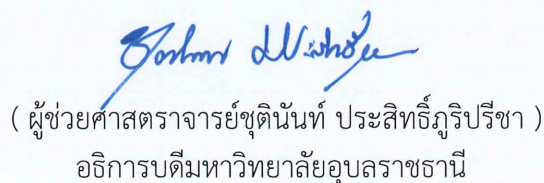 ( ผู้ช่วยศาสตราจารย์ชุตินันท์ ประสิทธิ์ภูริปรีชา )
อธิการบดีมหาวิทยาลัยอุบลราชธานี